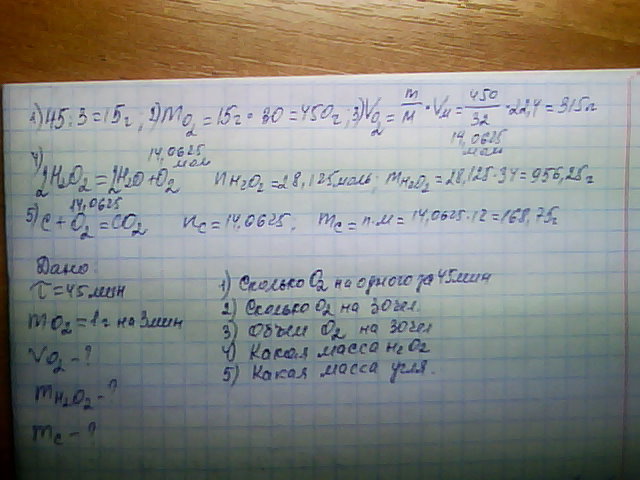 1) 45:3=15г; 2) mO2=15г·30=450г; 3) VO2=m/M·Vм=450/32·22,4=315л
14,0625 моль
4) 14,0625 моль
2H2O2=2H2O+O2 nH2O2=28,125моль; mH2O2=28,125·34=956,25г
14,0625
5) C+O2=CO2 nC=14,0625; mC=n·M=14,0625·12=168,75г
Дано:
τ=45мин
mO2=1г на 3мин
VO2-?
mH2O2-?
mC-?
1) Сколько O2 на одного за 45мин
2) Сколько O2 на 30чел.
3) Объем O2 на 30чел
4) Какая масса H2O2
5) Какая масса угля.